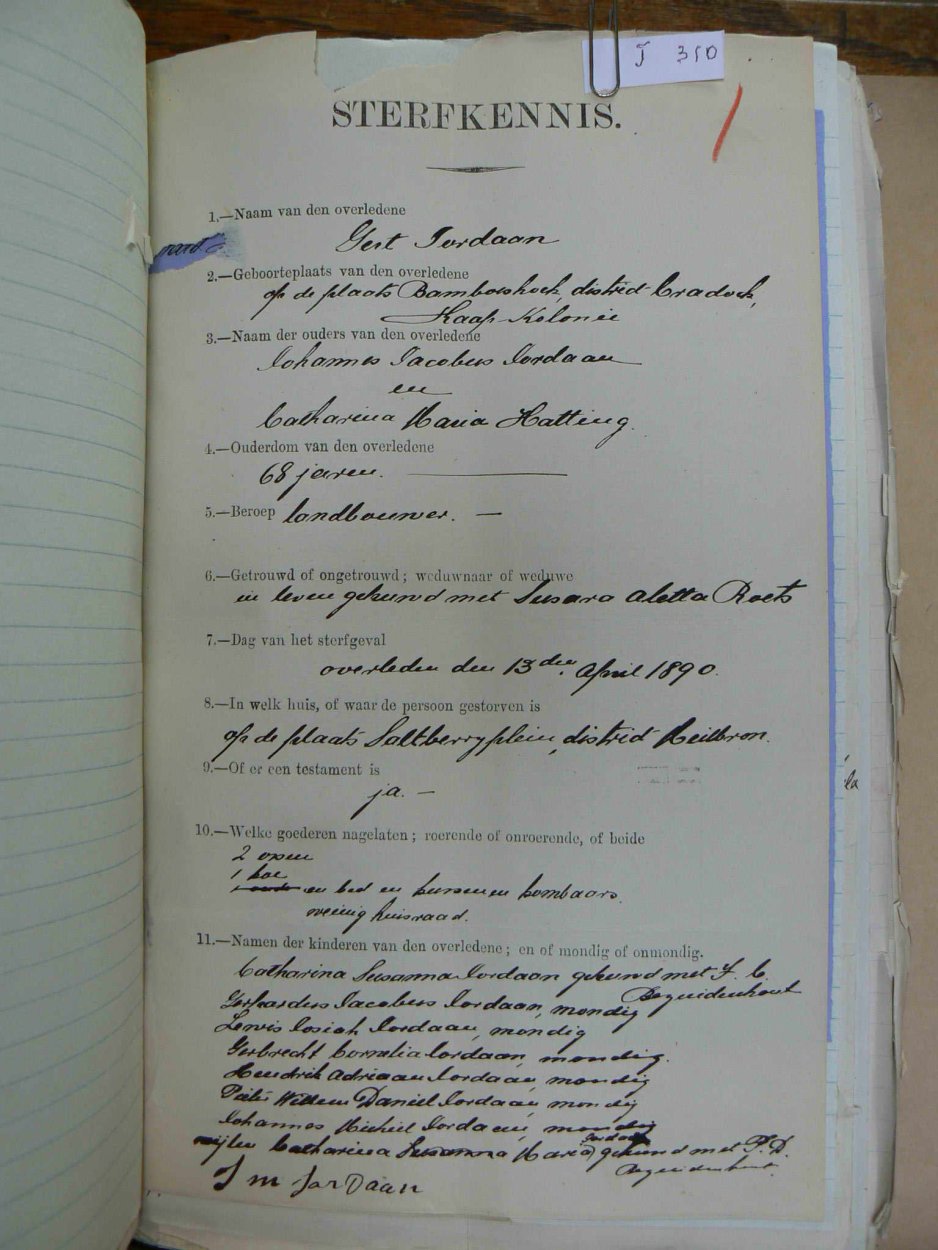 J 310
STERFKENNIS.
1.—Naam van den overledene
Gert Jordaan
2.—Geboorteplaats van den overledene
op de plaats Bamboshoek, district Cradock,
Kaap-Kolonie
3.—Naam der ouders van den overledene
Johannes Jacobus Jordaan
en
Catharina Maria Hatting.
4.—Ouderdom van den overledene
68 jaren.
5.—Beroep landbouwer. —
6.—Getrouwd of ongetrouwd; weduwnaar of weduwe
in leven gehuwd met Susara Aletta Roets
7.—Dag van het sterfgeval
overleden den 13den April 1890.
8.—In welk huis, of waar de persoon gestorven is
op de plaats Saltberryplein, district Heilbron.
9.—Of er een testament is
ja. —
10.—Welke goederen nagelaten; roerende of onroerende, of beide
2 ossen
1 koe
en bed en kussen en kombaars
weinig huisraad.
11.—Namen der kinderen van den overledene; en of mondig of onmondig.
Catharina Susanna Jordaan gehuwd met J. C.
Bezuidenhout
Gerhardus Jacobus Jordaan, mondig
Lewis Josiah Jordaan, mondig
Gerbrecht Cornelia Jordaan, mondig.
Hendrik Adriaan Jordaan, mondig
Pieter Willem Daniel Jordaan, mondig
Johannes Michiel Jordaan, mondig
wijlen Catharina Susanna Maria Jordaan gehuwd met P. D.
Bezuidenhout.
J m JorDaan